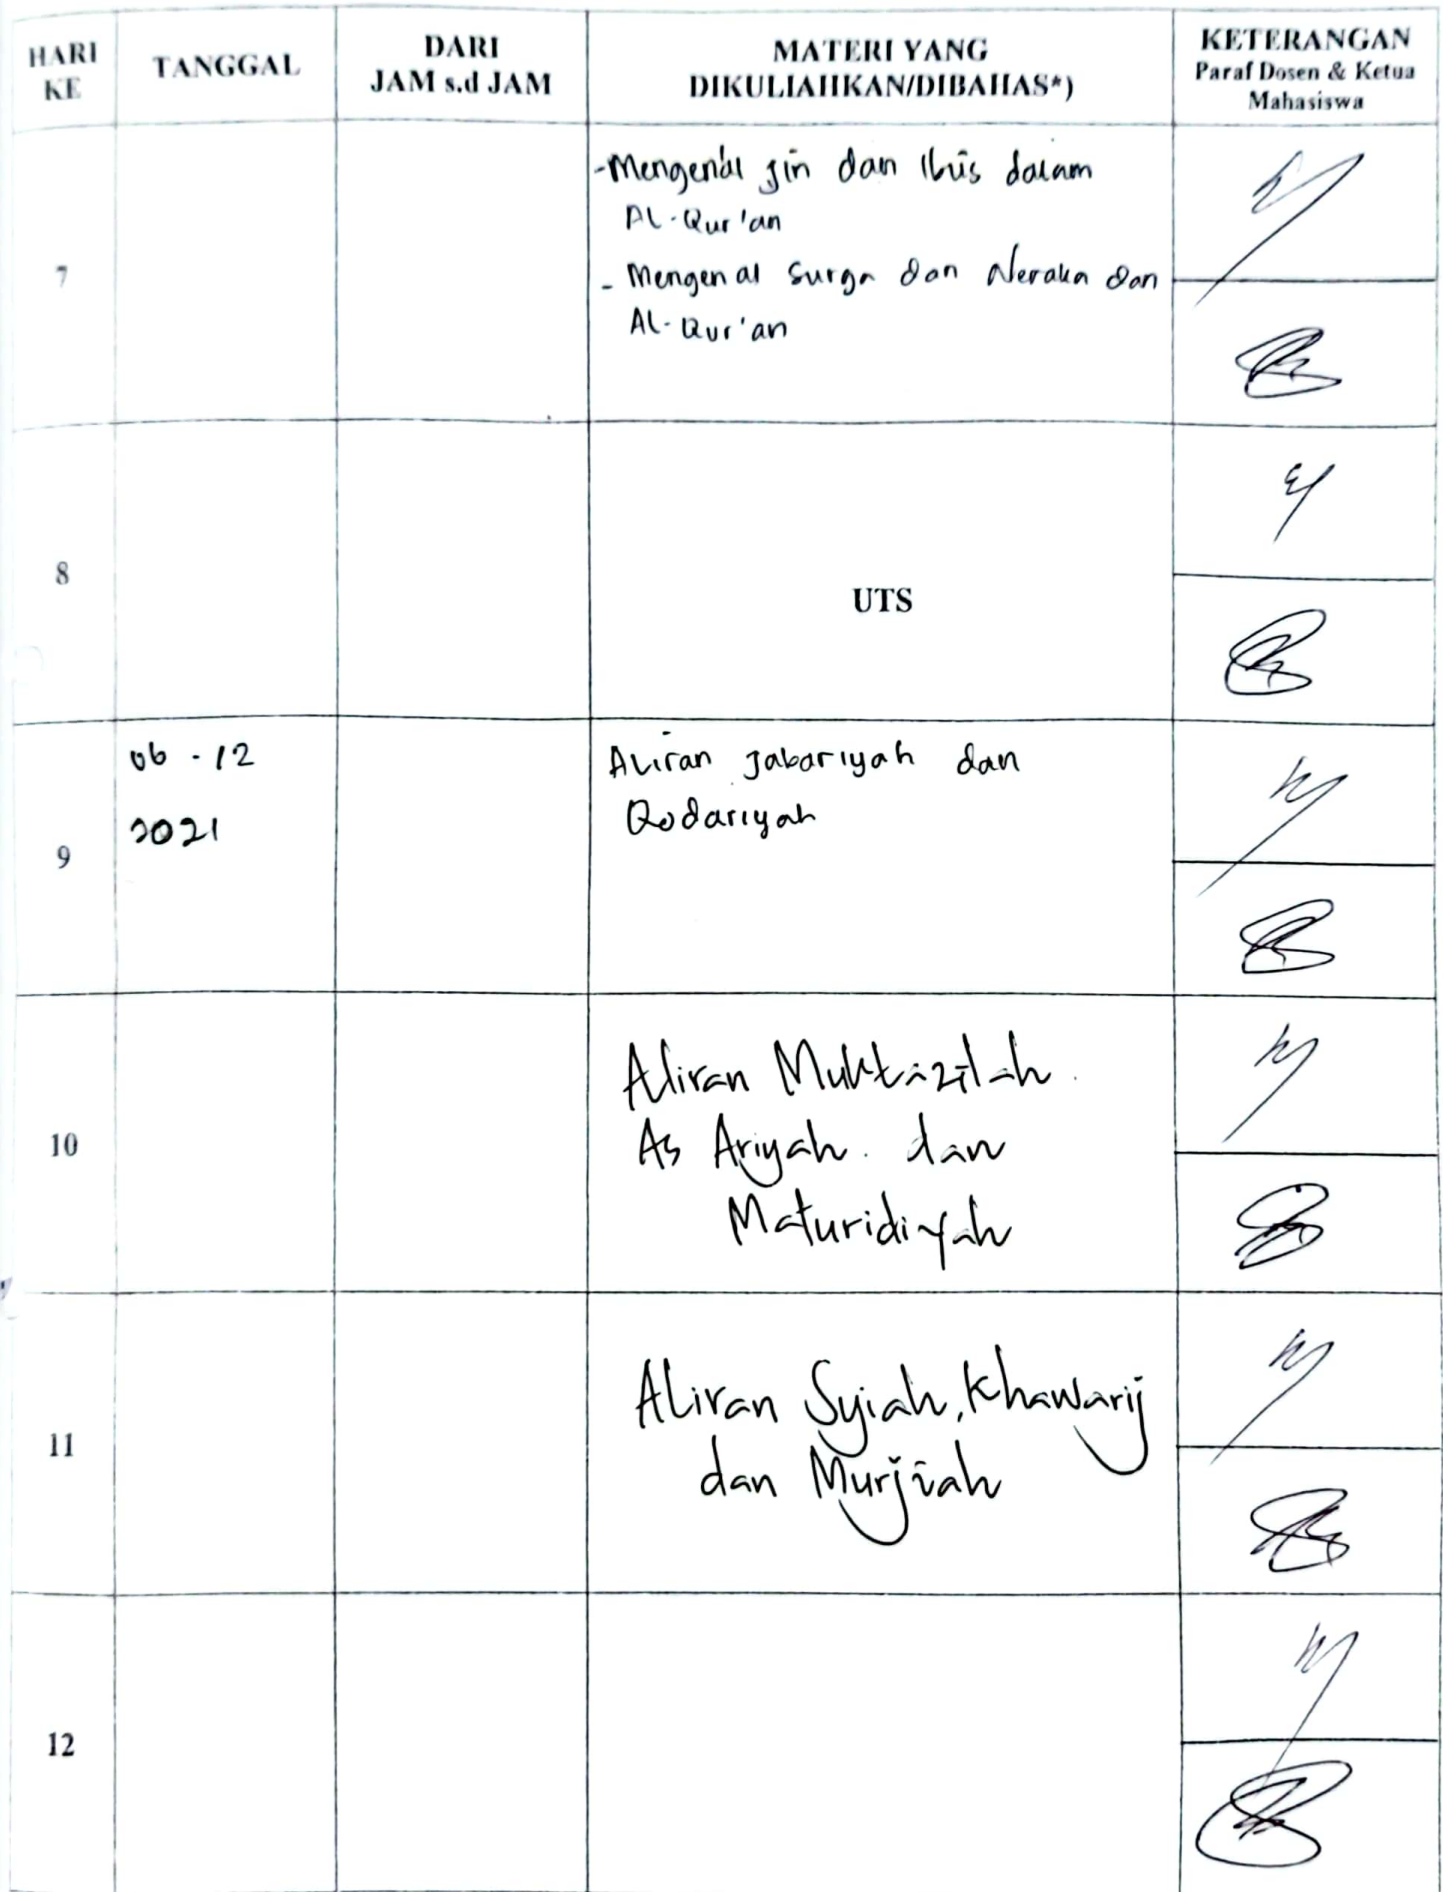 HARI KE
TANGGAL
DARI
JAM s.d JAM
MATERI YANG
DIKULIAHKAN/DIBAHAS*)
KETERANGAN
Paraf Dosen & Ketua
Mahasiswa
7
-Mengenal jin dan Iblis dalam
AL-Qur'an
- Mengenal Surga dan Neraka dan
AL-Qur'an
8
UTS
9
06 - 12
2021
Aliran Jabariyah dan
Qodariyah
10
Aliran Muktazilah
As Ariyah dan
Maturidiyah
11
Aliran Syiah, Khawarij
dan Murjiah
12